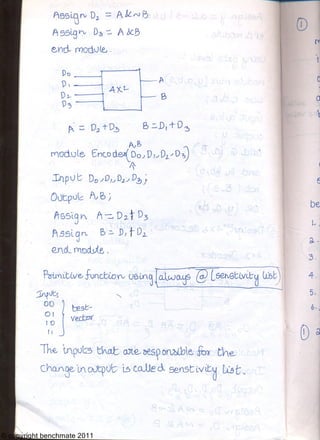 Assign D₂ = A & ~B
Assign D₃ = A & B
end module.
D₀
D₁
D₂
D₃
4x2
A
B
A = D₂ + D₃ B = D₁ + D₃
A,B
module Encoder (D₀, D₁, D₂, D₃)
Input D₀, D₁, D₂, D₃;
Output A, B;
Assign A = D₂ + D₃
Assign B = D₁ + D₂
end module.
Primitive function using always @ [sensetivity list)
Inputs
00
01
10
11
test-
vector
The inputs that are responsible for the
change in output is called senstivity list.
1
be
1.
2.
3.
4.
5.
6.
1
© copyright benchmate 2011